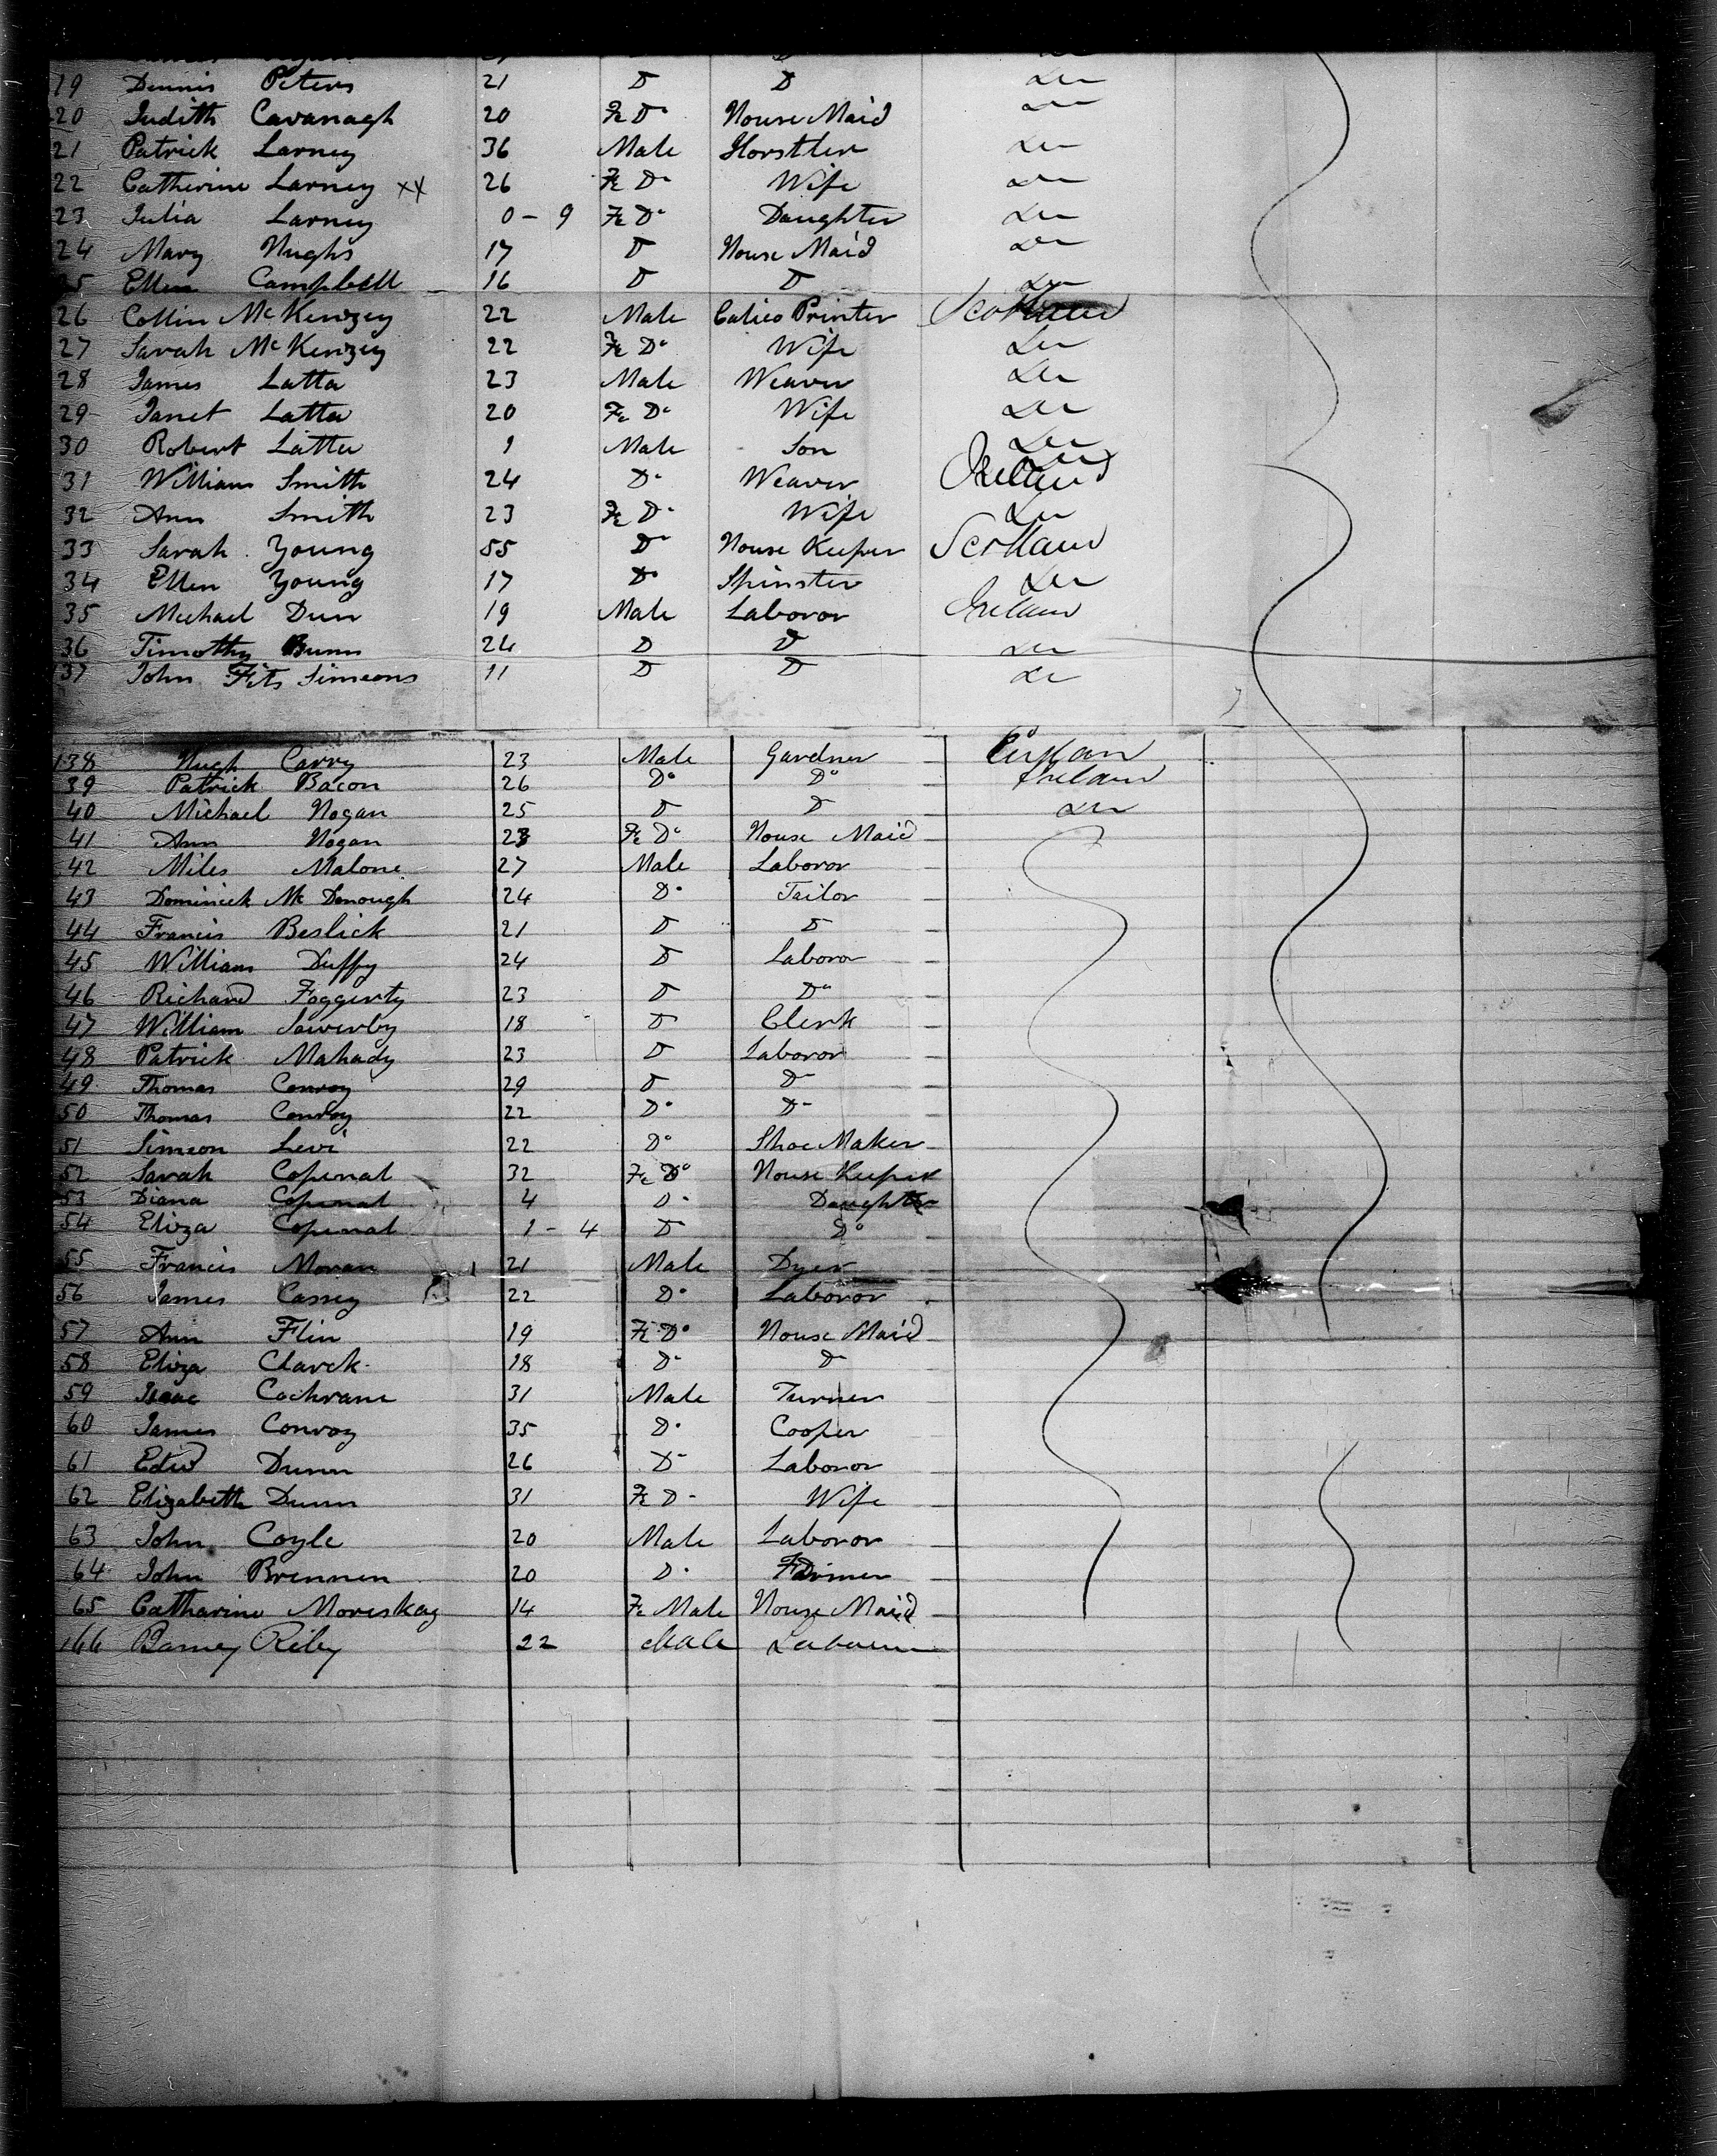 19 Dennis Peters 21 D D Do
20 Judith Cavanagh 20 Fe Do House Maid Do
21 Patrick Larney 36 Male Horstler Do
22 Catherine Larney xx 26 Fe Do Wife Do
23 Julia Larney 0 - 9 Fe Do Daughter Do
24 Mary Hughs 17 D House Maid Do
25 Ellen Campbell 16 D D Do
26 Collin McKenzey 22 Male Calico Printer Scotland
27 Sarah McKenzey 22 Fe Do Wife Do
28 James Latta 23 Male Weaver Do
29 Janet Latta 20 Fe Do Wife Do
30 Robert Latta 1 Male Son Do
31 William Smith 24 Do Weaver Ireland
32 Ann Smith 23 Fe Do Wife Do
33 Sarah Young 55 Do House Keeper Scotland
34 Ellen Young 17 Do Spinster Do
35 Michael Dun 19 Male Laboror Ireland
36 Timothy Bunn 24 D D Do
137 John Fits Simeons 11 D D Do
138 Hugh Carry 23 Male Gardner
39 Patrick Bacon 26 Do Do Ireland
40 Michael Hogan 25 D D Do
41 Ann Hogan 23 Fe Do House Maid
42 Miles Malone 27 Male Laboror
43 Dominick Mc Donough 24 Do Tailor
44 Francis Beslick 21 D D
45 William Duffy 24 D Laboror
46 Richard Foggerty 23 D Do
47 William Sowerby 18 D Clerk
48 Patrick Mahady 23 D Laboror
49 Thomas Conroy 29 D D
50 Thomas Conroy 22 Do D
51 Simeon Levi 22 Do Shoe Maker
52 Sarah Copenal 32 Fe Do House Keeper
53 Diana Copenal 4 Do Daughter
54 Eliza Copenal 1 - 4 D Do
55 Francis Moran 21 Male Dyer
56 James Cassey 22 Do Laboror
57 Ann Flin 19 Fe Do House Maid
58 Eliza Clarck 18 Do D
59 Isaac Cochrane 31 Male Turner
60 James Conroy 35 Do Cooper
61 Edwd Dunn 26 D Laboror
62 Elizabeth Dunn 31 Fe D Wife
63 John Coyle 20 Male Laboror
64 John Brennen 20 Do Farmer
65 Catharine Moreskay 14 Fe Male House Maid
166 Barney Riley 22 Male